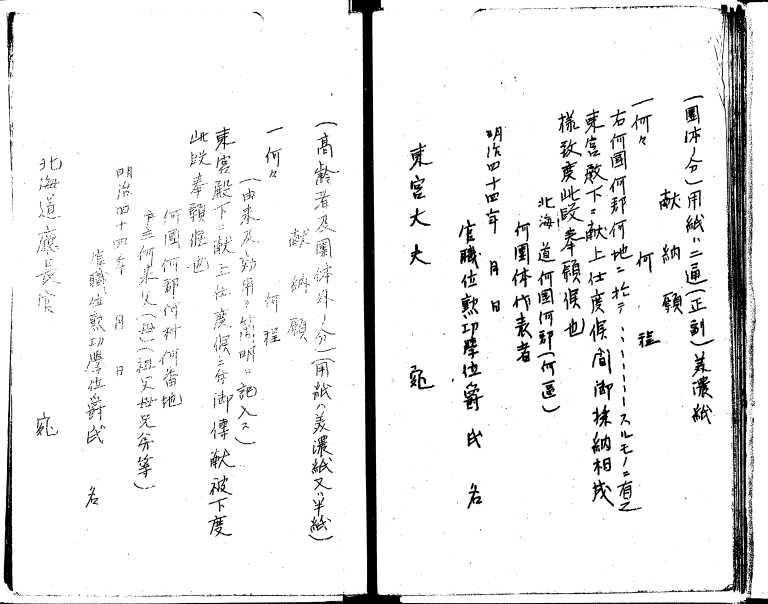 (團体ノ分)用紙ハ二通(正副)美濃紙
献納願
一何々 何程
右何國何郡何地ニ於テ、、、、、、、スルモノニ有之
東宮殿下ニ献上仕度候間御採納相成
様致度此段奉願候也
北海道何國何郡(何區)
何團体代表者
明治四十四年 月 日
官職位勲功學位爵 氏 名
東宮大夫 宛
(高齢者及團体外ノ分)(用紙ハ美濃紙又ハ半紙)
献納願
一何々 何程
(由来及効用ヲ簡明ニ記入ス)
東宮殿下ニ献上仕度候ニ付御傳献被下度
此段奉願候也
何國何郡何村何番地
何某父(母)(祖父母兄弟等)
明治四十四年 月 日
官職位勲功學位爵氏 名
北海道廳長官 宛